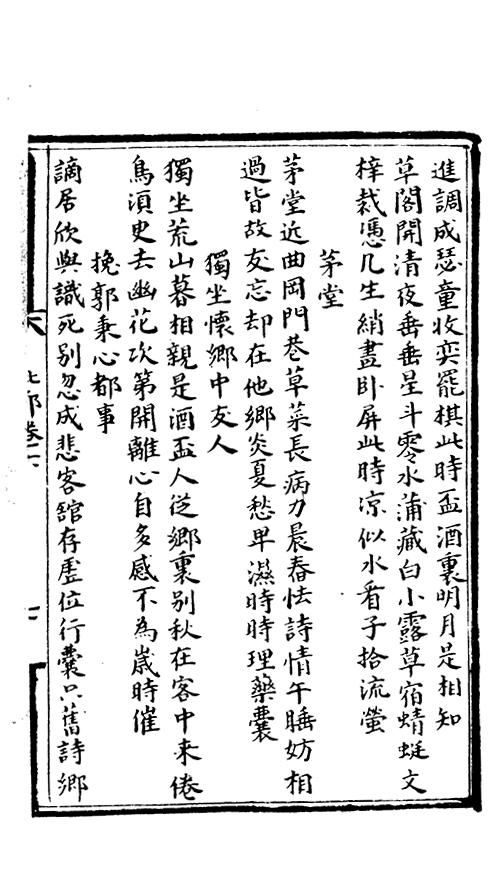 進調成瑟童收奕罷棋此時盃酒裏明月是相知
草閣開清夜垂垂星斗零水蒲藏白小露草宿蜻蜓文
梓裁憑几生綃畫卧屏此時凉似水看子拾流螢
茅堂
茅堂近曲岡門巷草菜長病力晨舂怯詩情午睡妨相
過皆故友忘却在他鄉炎夏愁卑濕時時理藥囊
獨坐懷鄉中友人
獨坐荒山暮相親是酒盃人從鄉裏別秋在客中来倦
鳥湏臾去幽花次第開離心自多感不為嵗時催
挽郭秉心都事
謫居欣與識死别忽成悲客舘存虚位行囊只舊詩鄉
卷二